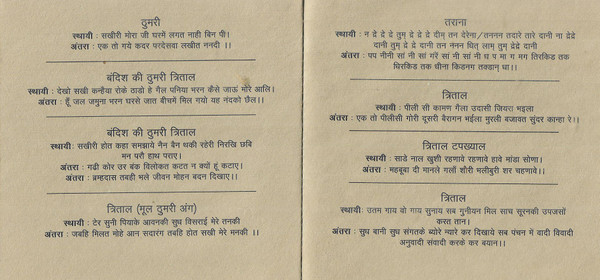 ठुमरी
स्थायी : सखीरी मोरा जी घरमें लगत नाही बिन पी।
अंतरा : एक तो गये कदर परदेसवा लखीत ननदी ।।
बंदिश की ठुमरी त्रिताल
स्थायी : देखो सखी कन्हैया रोके ठाडो हे गैल पनिया भरन कैसे जाऊं मोरे आलि।
अंतरा : हूँ जल जमुना भरन घरसे जात बीचमें मिल गयो यह नंदको छैल।।
बंदिश की ठुमरी त्रिताल
स्थायी : सखीरी होत कहा समझाये नैन बैन थकी रहेरी निरखि छबि
मन परौ हाथ पराए।
अंतरा : गढी कोर उर बंक विलोकत कटत न क्यों हूं कटाए।
अंतरा : ब्रम्हदास तबही भले जीवन मोहन बदन दिखाए।।
त्रिताल (मूल ठुमरी अंग)
स्थायी : टेर सुनी पियाके आदनकी सुध विसराई मेरे तनकी
अंतरा : जबहि मिलत मोहे आन सदारंग तबहि होत सखी मेरे मनकी ।।
तराना
स्थायी : न द्रे द्रे द्रे तुम् द्रे द्रे द्रे दीम् तन देरेना/तननन तदारे तारे दानी ना द्रेद्रे
दानी तुम् द्रेद्रे दानी तन ननन धित् लाम् तुम् द्रेद्रे दानी।
अंतरा : पप नीनी सां नी सां गरें सां नी सां नी ध प म ग मग तिरकिड तक
धिरकिड तक धीना किडनग तक्डान् धा।।
त्रिताल
स्थायी : पीली सी कामण गैला उदासी जियरा भइला
अंतरा : एक तो पीलीसी गोरी दूसरी बैरागन भईला मुरली बजावत सुंदर कान्हा रे।।
त्रिताल टपख्याल
स्थायी : साडे नाल खुशी रहणावे रहणावे हावे मांडा सोणा।
अंतरा : महबूबा दी मानले गलाँ शौरी भलीबुरी शर चहणावे।।
त्रिताल
स्थायी : उतम गाय वो गाय सुनाय सब गुनीयन मिल साच सूरनकी उपजसों
करत तान।
अंतरा : सुध बानी सुध संगतके ब्योरे न्यारे कर दिखाये सब पंचन में वादी विवादी
अनुवादी संवादी करके कर बयान।।